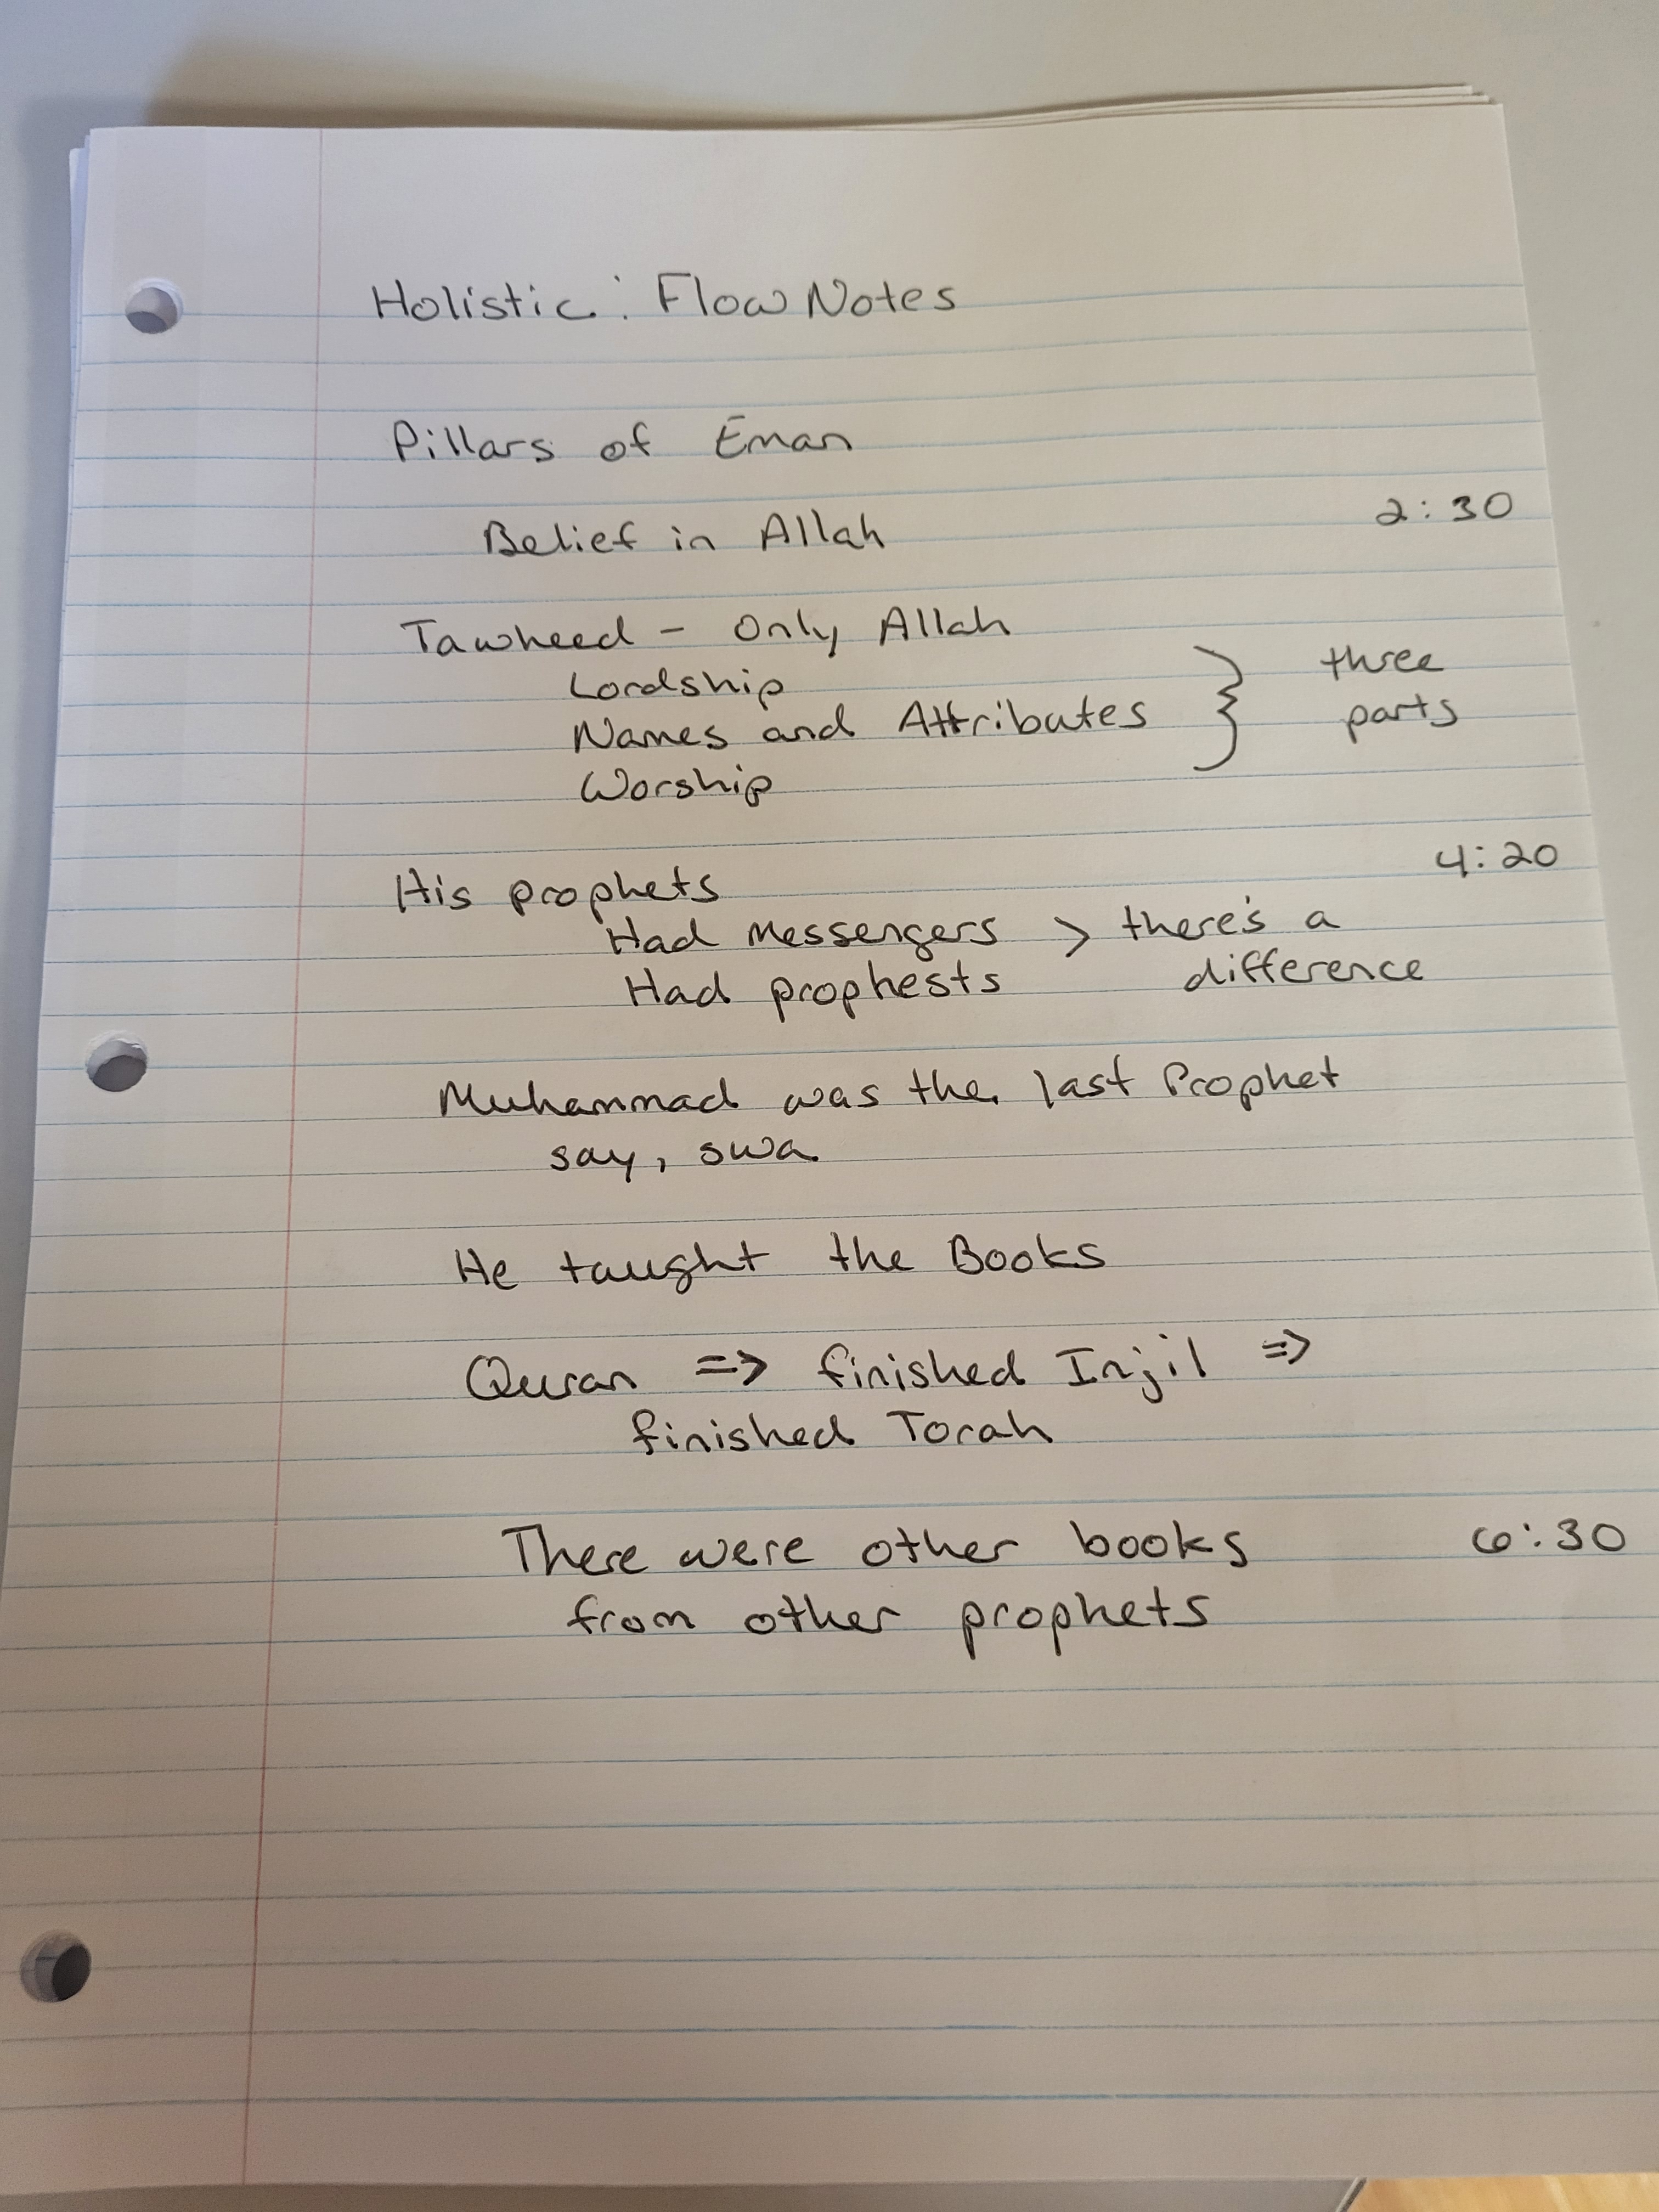 Holistic: Flow Notes
Pillars of Eman
2:30
Belief in Allah
Tawheed - Only Allah
Lordship
Names and Attributes } three parts
Worship
4:20
His prophets
Had Messengers > there's a
Had prophests difference
Muhammad was the last Prophet
say, swa
He taught the Books
Quran => finished Injil =>
finished Torah
There were other books 6:30
from other prophets